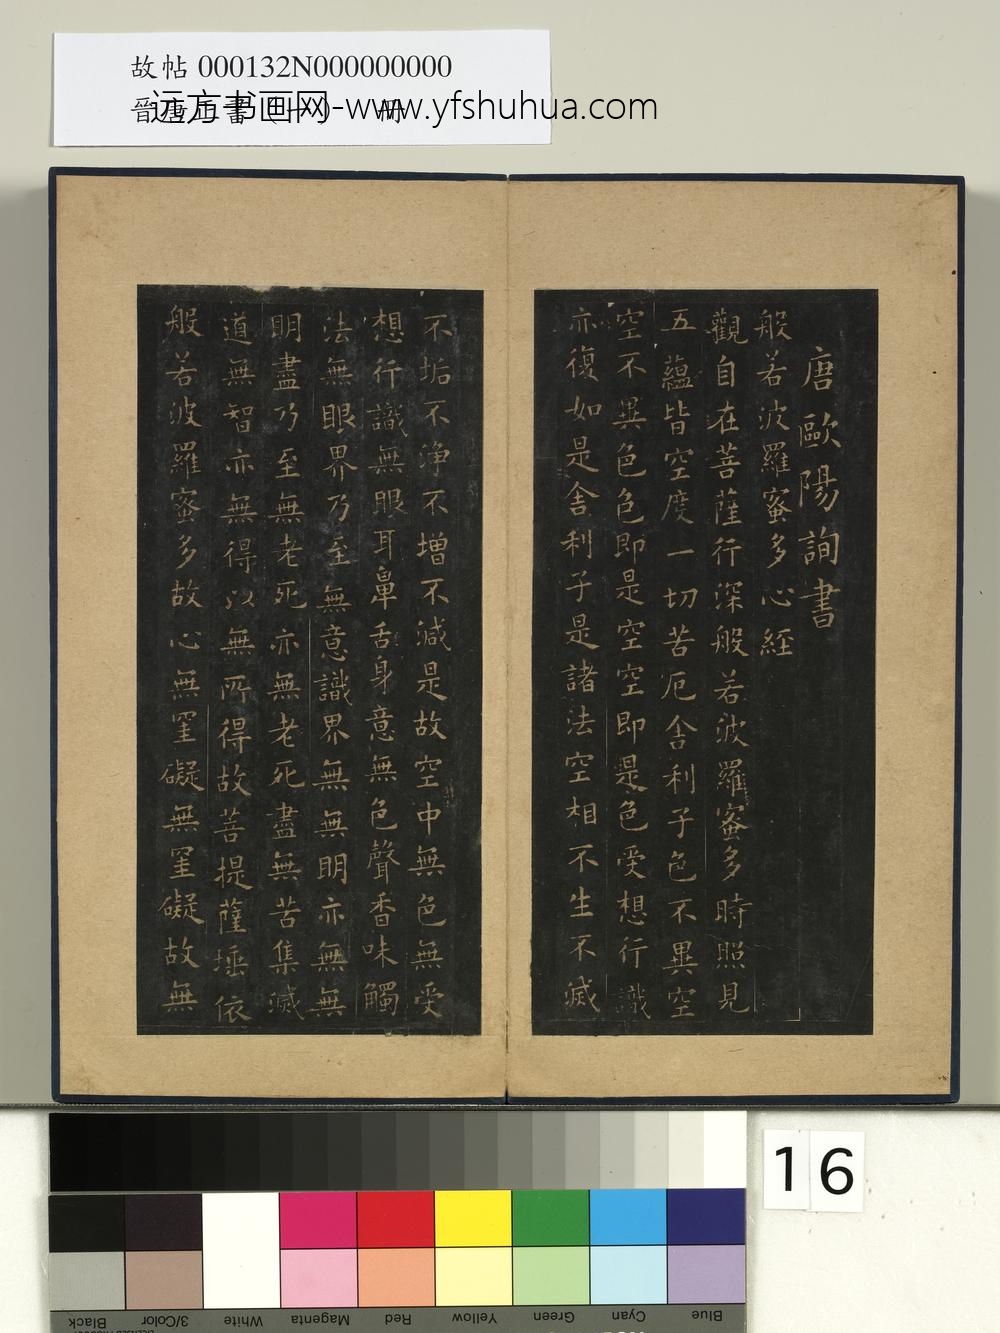 故帖 000132N000000000
远方书画网-www.yfshuhua.com
唐歐陽詢書
般若波羅蜜多心經
觀自在菩薩行深般若波羅蜜多時照見
五蘊皆空度一切苦厄舍利子色不異空
空不異色色即是空空即是色受想行識
亦復如是舍利子是諸法空相不生不滅
不垢不淨不增不減是故空中無色無受
想行識無眼耳鼻舌身意無色聲香味觸
法無眼界乃至無意識界無無明亦無無
明盡乃至無老死亦無老死盡無苦集滅
道無智亦無得以無所得故菩提薩埵依
般若波羅蜜多故心無罣礙無罣礙故無
16
Black 3/Color White Magenta Red Yellow Green Cyan Blue